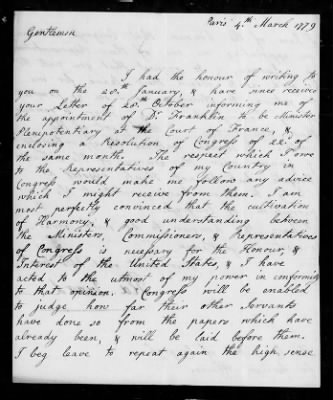 Paris 4.th March 1779
Gentlemen
I had the honour of writing to
you on the 20.th January, & have since received
your Letter of 28.th October informing me of
the appointment of D.r Franklin to be Minister
Plenipotentiary at the Court of France, &
inclosing a Resolution of Congress of 22.d of
the same month. The respect which I owe
to the Representatives of my Country in
Congress would make me follow any advice
which I might receive from them. I am
most perfectly convinced that the cultivation
of Harmony, & good understanding between
the Ministers, Commissioners, & Representatives
of Congress is necessary for the Honour, &
Interest of the United States, & I have
acted to the utmost of my power in conformity
to that opinion. Congress will be enabled
to judge how far their other Servants
have done so from the papers which have
already been, & will be laid before them.
I beg leave to repeat again the high sense